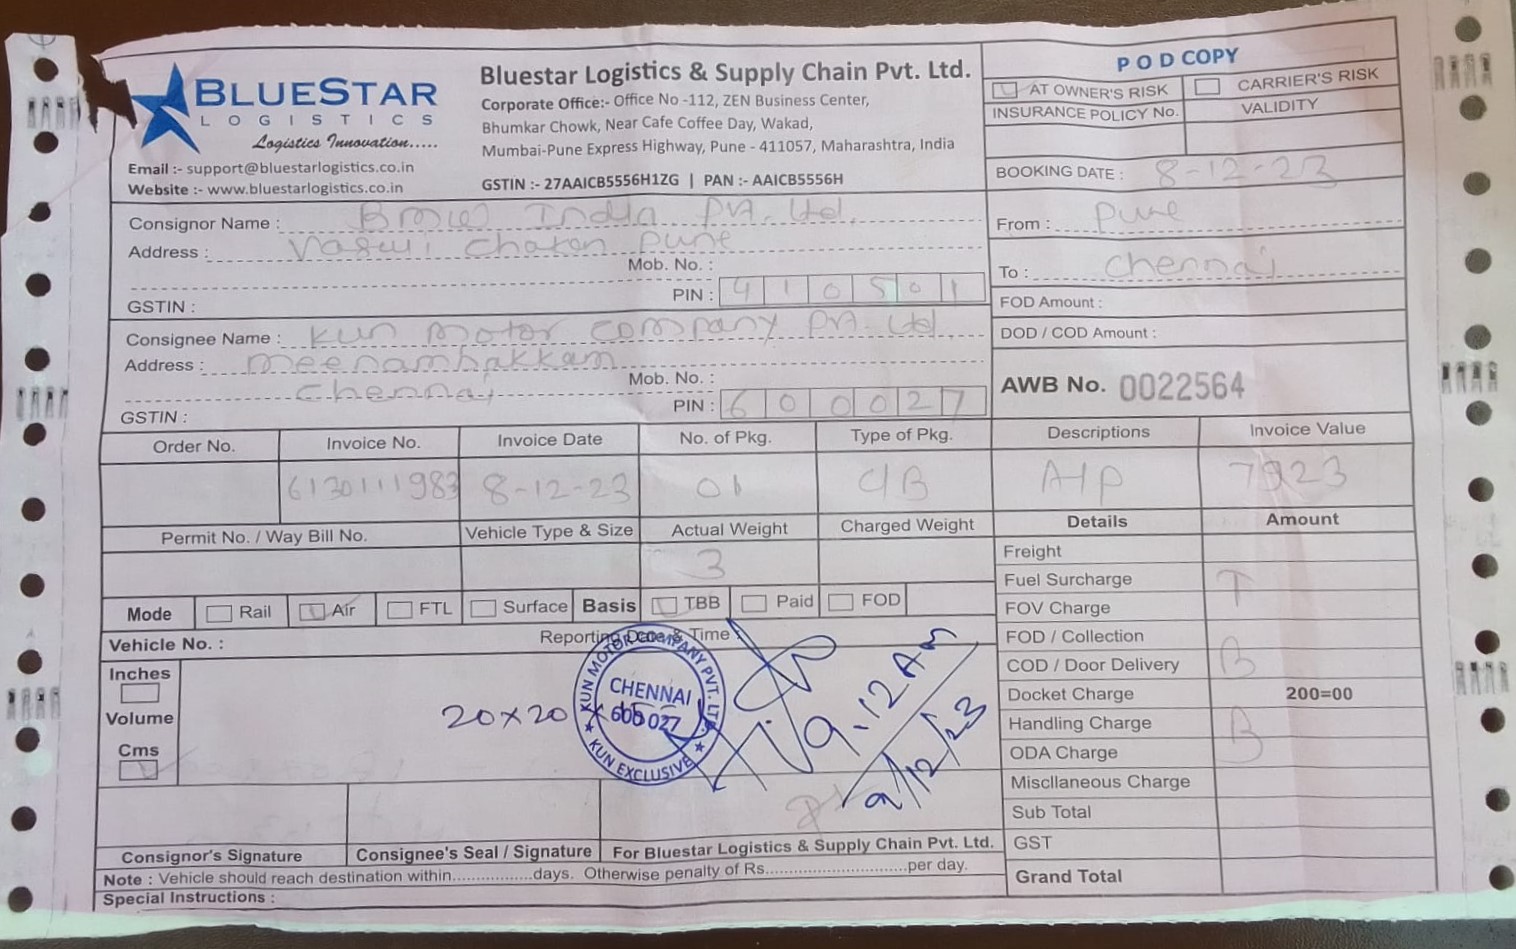 BLUESTAR
LOGISTICS
Logistics Innovation.....
Email :- support@bluestarlogistics.co.in
Website :- www.bluestarlogistics.co.in
Bluestar Logistics & Supply Chain Pvt. Ltd.
Corporate Office:- Office No -112, ZEN Business Center,
Bhumkar Chowk, Near Cafe Coffee Day, Wakad,
Mumbai-Pune Express Highway, Pune - 411057, Maharashtra, India
GSTIN :- 27AAICB5556H1ZG | PAN :- AAICB5556H
POD COPY
AT OWNER'S RISK CARRIER'S RISK
INSURANCE POLICY No. VALIDITY
BOOKING DATE : 8-12-23
Consignor Name : India Pvt. Ltd.
Address : Chakan Pune
Mob. No. :
GSTIN : PIN : 410501
From : Pune
To : Chennai
FOD Amount :
DOD / COD Amount :
Consignee Name : Kun Motor Company Pvt. Ltd
Address : Meenambakkam
Chennai Mob. No. :
GSTIN : PIN : 600027
AWB No. 0022564
Order No. Invoice No. Invoice Date No. of Pkg. Type of Pkg. Descriptions Invoice Value
6130111983 8-12-23 01 CB A/P 7923
Permit No. / Way Bill No. Vehicle Type & Size Actual Weight Charged Weight Details Amount
3
Freight
Fuel Surcharge T
FOV Charge
FOD / Collection
COD / Door Delivery B
Docket Charge 200=00
Handling Charge B
ODA Charge
Miscllaneous Charge
Sub Total
GST
Grand Total
Mode Rail Air FTL Surface Basis TBB Paid FOD
Vehicle No. : Reporting Date & Time :
Inches
Volume
Cms
20x20x
KUN MOTOR COMPANY PVT. LTD.
CHENNAI
600 027
★ KUN EXCLUSIVE ★
9.12 Am
9/12/23
Consignor's Signature Consignee's Seal / Signature For Bluestar Logistics & Supply Chain Pvt. Ltd.
Note : Vehicle should reach destination within................days. Otherwise penalty of Rs..............................per day.
Special Instructions :